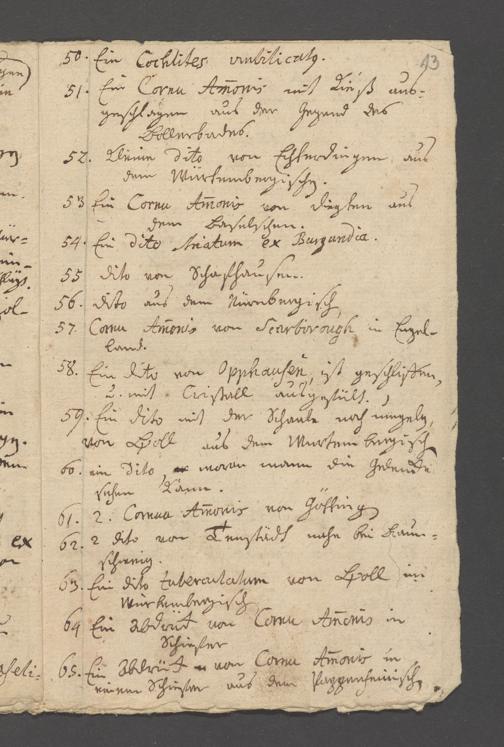 43
50. Ein Cochlites umbilicatq.
51. Ein Cornu Amonis mit Kieß aus-
geschlagen aus der Gegend des
Bollerbades.
52. Kleine dito von Echterdingen aus
dem Würtembergischen.
53 Ein Cornu Amonis von Diegten aus
dem Baselschen.
54. Ein dito striatum ex Burgundia.
55 dito von Schafhausen.
56. dito aus dem Nürnbergisch
57. Cornu Amonis von Scarborough in Engel-
land.
58. Ein dito von ist geschliffen,
u. mit Cristall ausgefült.
59. Ein dito mit der Schaale noch umgeben,
von Boll aus dem Wurtembergisch
60. ein dito, woran mann die Gelencke
sehen kann.
61. 2. Cornua Amonis von
62. 2 dito von nahe bei Braun-
schweig.
63. Ein dito tuberculatum von Boll im
Würtembergisch
64 Ein abdruk von Cornu Amonis in
Schiefer
65. Ein abdruk von Cornu Amonis in
einem Schiefer aus dem Pappenheimisch